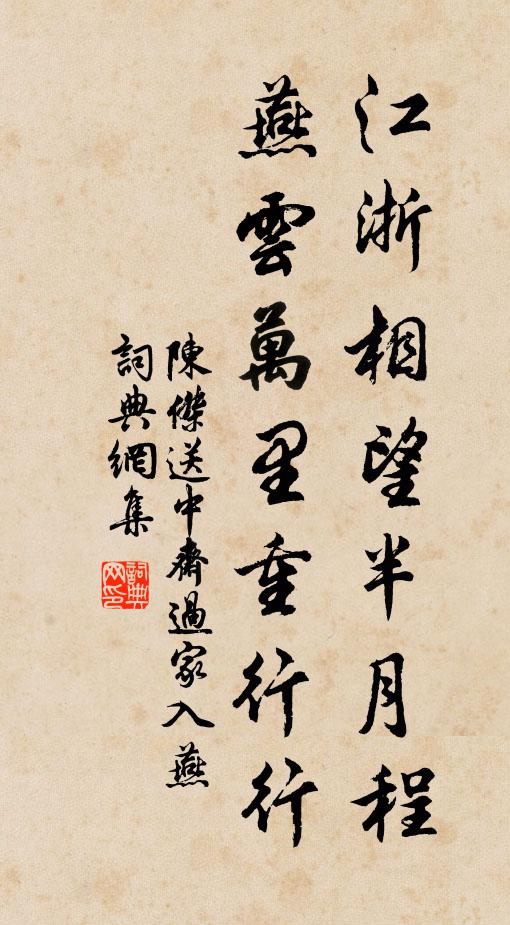 江浙相望半月程
燕雲萬里重行行
陳傑送中齋過家入燕
詞典網集
詞典网印